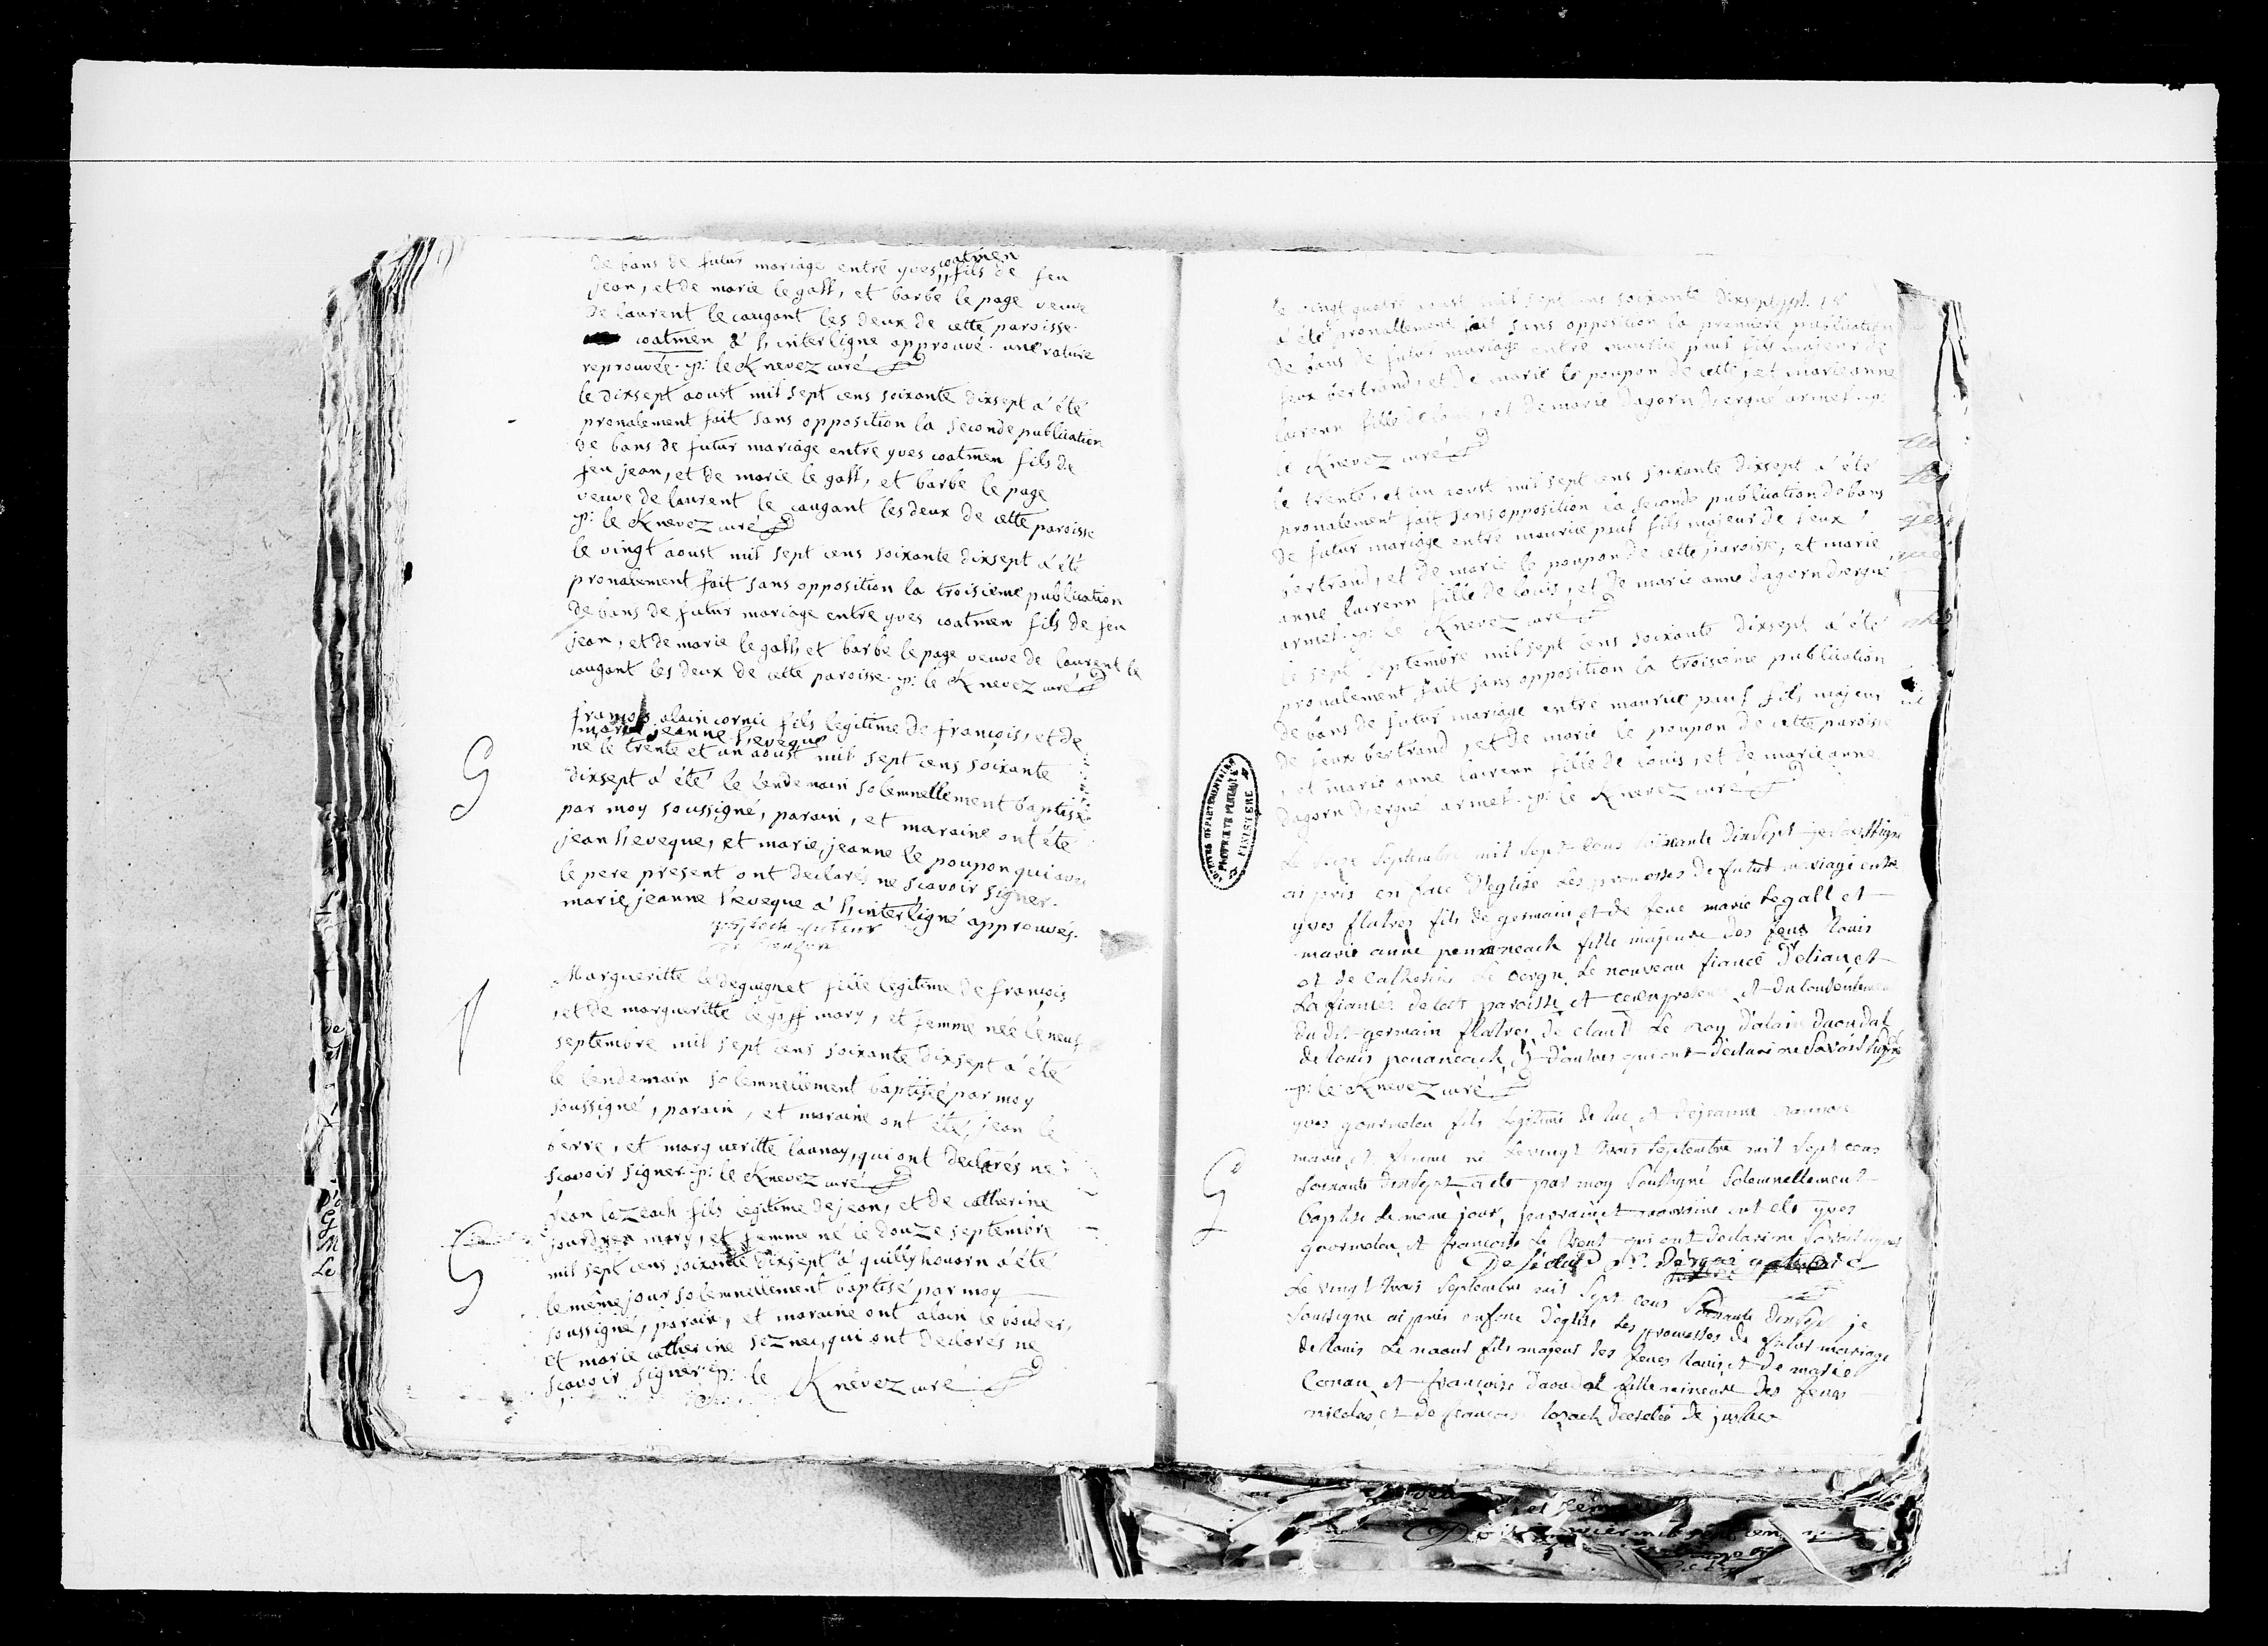 de bans de futur mariage entre yves coatmen fils de feu
jean, et de marie le gall, et barbe le page veuve
de laurent le caugant les deux de cette paroisse.
coatmen à l'interligne approuvé. une rature
reprouvée. p: le Knevez curé
le dixsept aoust mil sept cens soixante dixsept a été
pronalement fait sans opposition la seconde publication
de bans de futur mariage entre yves coatmen fils de
feu jean, et de marie le gall, et barbe le page
veuve de laurent le caugant les deux de cette paroisse
p: le Knevez curé
le vingt aoust mil sept cens soixante dixsept a été
pronalement fait sans opposition la troisieme publication
de bans de futur mariage entre yves coatmen fils de feu
jean, et de marie le gall, et barbe le page veuve de laurent le
caugant les deux de cette paroisse. p: le Knevez curé
françois alain cornic fils legitime de françois, et de
marie jeanne l'eveque
G
né le trente et un aoust mil sept cens soixante
dixsept a été le lendemain solemnellement baptisé
par moy soussigné, parain, et maraine ont été
jean l'eveque, et marie jeanne le poupon qui avec
le pere present ont declarés ne scavoir signer.
marie jeanne l'eveque à l'interligne approuvés.
Margueritte le deguignet fille legitime de françois
et de margueritte le goff mary, et femme née le neuf
septembre mil sept cens soixante dixsept a été
le lendemain solemnellement baptisée par moy
soussigné, parain, et maraine ont été, jean le
berre, et margueritte launay, qui ont declarés ne
scavoir signer. p: le Knevez curé
jean lozeach fils legitime de jean, et de catherine
jourdren mary, et femme né le douze septembre
G
mil sept cens soixante dixsept à quillyhouarn a été
le même jour solemnellement baptisé par moy
soussigné, parain, et maraine ont alain le bouder,
et marie catherine seznec, qui ont declarés ne
scavoir signer. p: le Knevez curé
le vingt quatre aoust mil sept cens soixante dixsept
a été pronallement fait sans opposition la premiere publication
de bans de futur mariage entre maurice paul fils majeur de
feux bertrand, et de marie le poupon de cette, et marie anne
laurenn fille de louis, et de marie dagorn d'ergué armel. p:
le Knevez curé
le trente, et un aoust mil sept cens soixante dixsept a été
pronalement fait sans opposition la seconde publication de bans
de futur mariage entre maurice paul fils majeur de feux
bertrand, et de marie le poupon de cette paroisse, et marie
anne laurenn fille de louis, et de marie anne dagorn d'ergué
armel. p: le Knevez curé
le sept septembre mil sept cens soixante dixsept a été
pronalement fait sans opposition la troisieme publication
de bans de futur mariage entre maurice paul fils majeur
de feux bertrand, et de marie le poupon de cette paroisse
, et marie anne laurenn fille de louis, et de marie anne
dagorn d'ergué armel. p: le Knevez curé
ARCHIVES DEPARTEMENTALES
PROPRIETE PUBLIQUE
FINISTERE
Le septembre mil sept cens soixante dixsept je soussigné
ai pris en face d'eglise les promesses de futur mariage entre
yves flatres fils de germain et de feue marie Legall et
marie anne fille majeure des feus Louis
et de Catherine Le Le nouveau fiancé d'elian, et
La fiancée de cette paroisse et en presence et du consentement
du dit germain flatres, de claud Le Roy d'alain daoudal
de Louis & d'autres qui ont declaré ne savoir signer
p: le Knevez curé
yves gourmelen fils legitime de luc, et de jeanne
mari et femme né Le vingt trois septembre mil sept cens
G
soixante dixsept a ete par moy soussigné solemnellement
baptisé le meme jour, parrain et marraine ont ete yves
gourmelen, et françoise Le qui ont declaré ne savoir signer
Le vingt trois septembre mil sept cens soixante dixsept je
soussigne ai pris en face d'eglise les promesses de futur mariage
de Louis Le naour fils majeur des feues Louis, et de marie
Conan, et françoise daoudal fille mineure des feus
nicolas et de françoise lozach decretée de justice